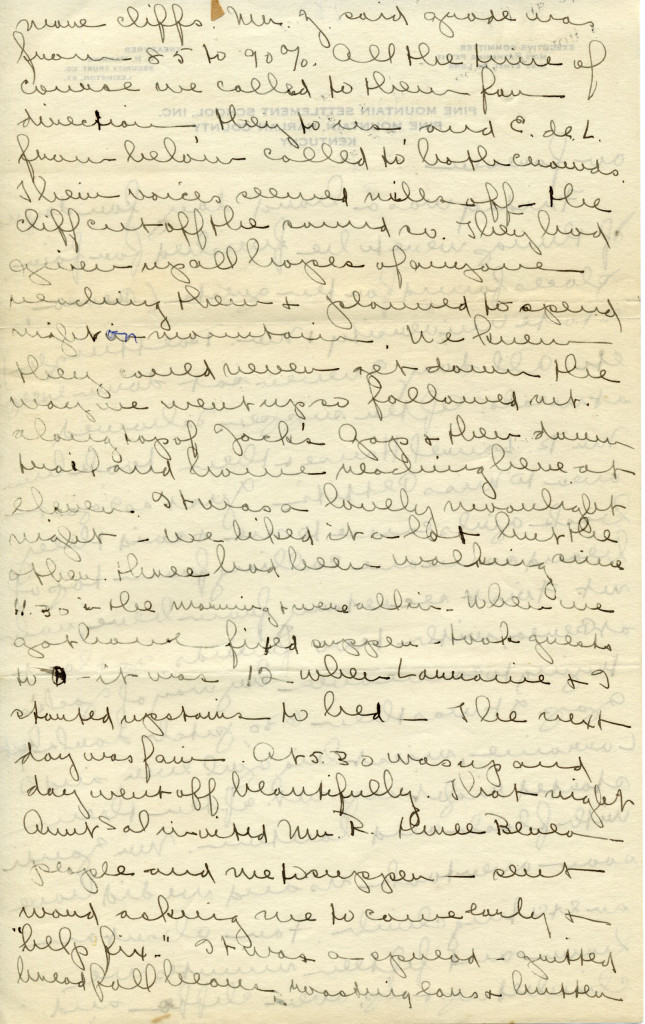 more cliffs. Mr. Z. said grade was
from 85 to 90%. All the time of
course we called to them for
direction, they to us and E. de L.
from below called to both crowds.
Their voices seemed miles off - the
cliff cut off the sound so. They had
given up all hopes of anyone
reaching them & planned to spend
night on mountain. We knew
they could never get down the
way we went up so followed mt.
along top of Jack's Gap & then down
trail and home reaching here at
eleven. It was a lovely moonlight
night - we liked it a lot but the
other three had been walking since
11.30 in the morning & were all in. When we
got home fixed supper - took guests
to - it was 12 - when Lorraine & I
started upstairs to bed - The next
day was fair. At 5.30 was up and
day went off beautifully. That night
Aunt Sal invited Mr. R. three Berea
people and me to supper - sent
word asking me to come early &
"help fix." It was a spread -
bread fall beans roasting ears & butter
PINE MOUNTAIN SETTLEMENT SCHOOL, INC.
KENTUCKY